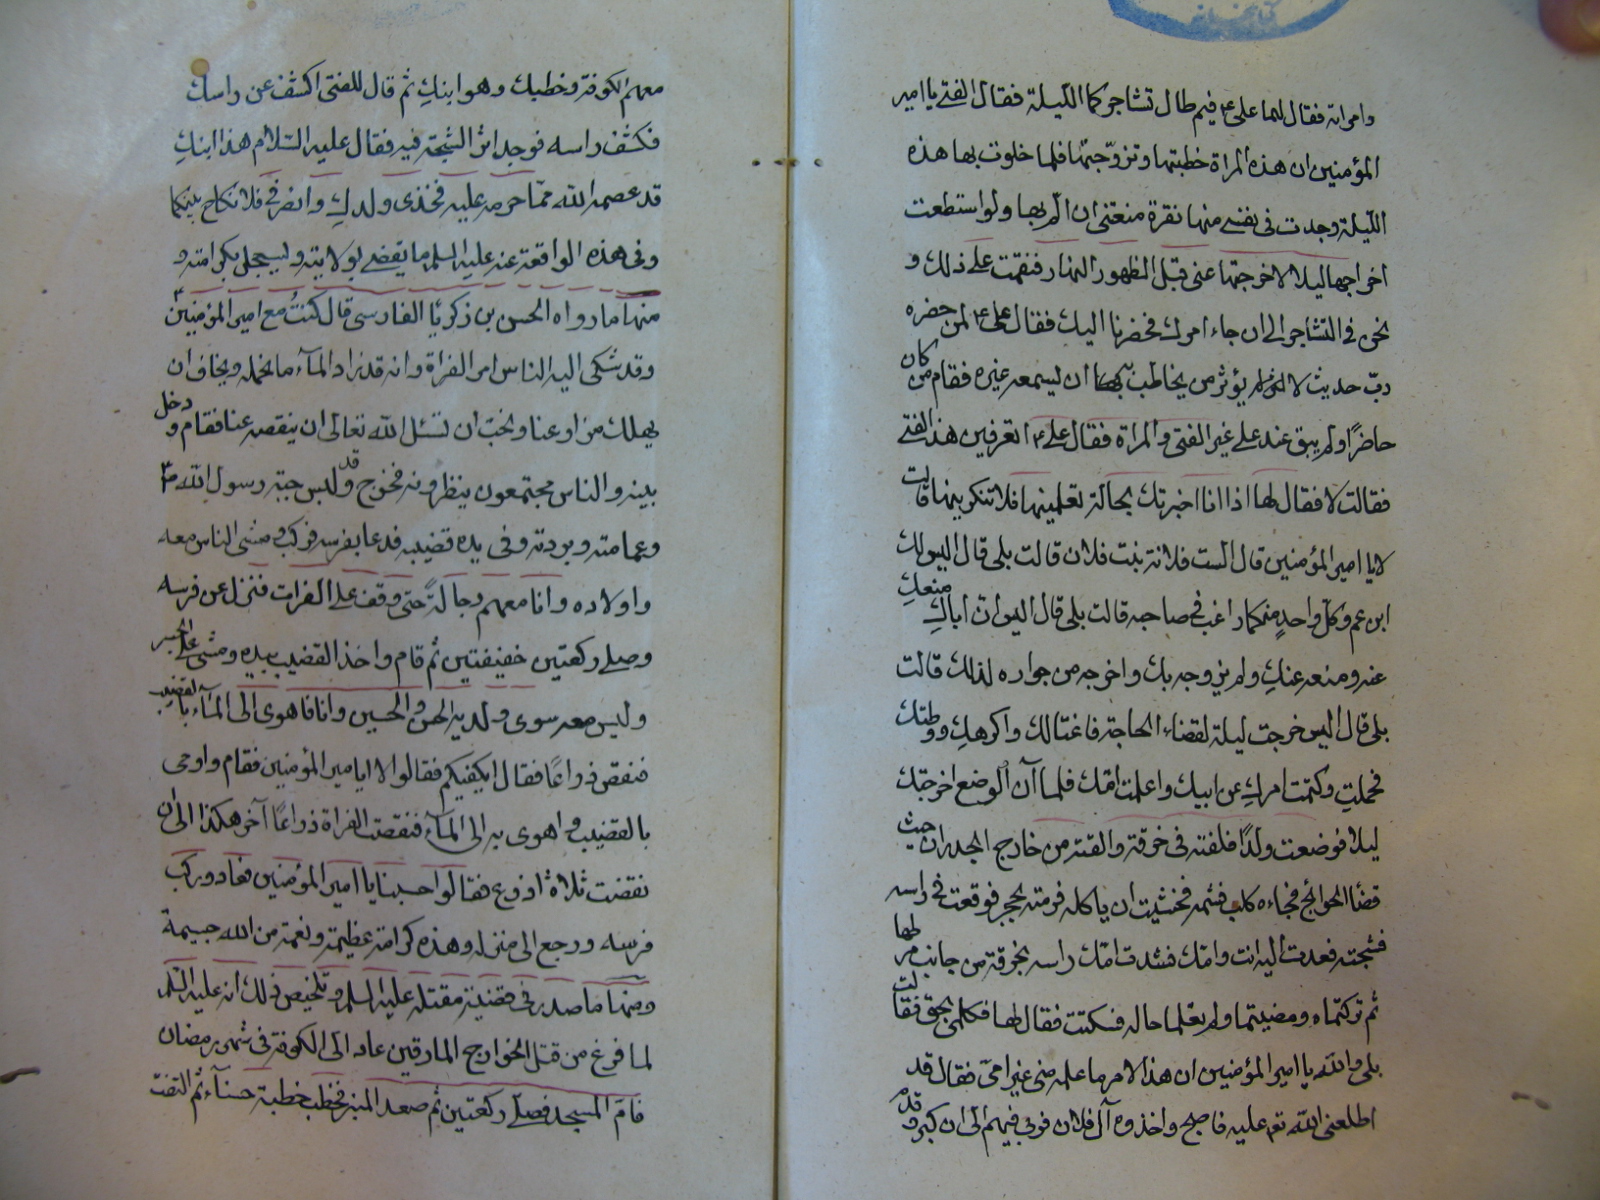 وامراة فقال لهما على ع فيم طال تشاجركما الليلة فقال الفتى يا امير
المؤمنين ان هذه المراة خطبتها وتزوّجتها فلما خلوت بها هذه
الليلة وجدت في نفسي منها نفرة منعتني ان المّ بها ولو استطعت
اخراجها ليلا لاخرجتها عنى قبل الظهور النهار فنقمت على ذلك و
نحن في التشاجر الى ان جاء امرك فحضرنا اليك فقال على ع لمن حضره
ربّ حديث لا يؤثر من يخاطب بها ان يسمعه غيره فقام من كان
حاضرًا ولم يبق عند على غير الفتى والمراة فقال على ع اتعرفين هذا الفتى
فقالت لا فقال لها اذا انا اخبرتك بحالة تعلمينها فلا تنكرينها قالت
لا يا امير المؤمنين قال الست فلانة بنت فلان قالت بلى قال اليس لك
ابن عم وكل واحدٍ منكما راغب في صاحبه قالت بلى قال اليس ان اباكِ منعكِ
عنه ومنعه عنكِ ولم يزوجه بك واخرجه من جواره لذلك قالت
بلى قال اليس خرجت ليلة لقضاء الحاجة فاغتالك واكرهكِ ووطئك
فحملتِ وكتمت امركِ عن ابيك واعلمت امك فلما آن الوضع اخرجتك
ليلا فوضعت ولدًا فلفته في خرقة والقته من خارج الجدران حيث
قضاء الحوائج فجاءه كلب فشمه فخشيت ان ياكله فرمته بحجر فوقعت في راسه
فشجته فعدت اليه انت وامك فشدت امك راسه بخرقة من جانب مرطها
ثم تركتماه ومضيتما ولم تعلما حاله فسكتت فقال لها فكلمى بحق فقالت
بلى والله يا امير المؤمنين ان هذا الامر ما علمه منى غير امى فقال قد
اطلعنى الله تع عليه فاصبح واخذوه آل فلان فربى فيهم الى ان كبر وقدم
معهم الكوفة وخطبك وهو ابنكِ ثم قال للفتى اكشف عن راسك
فكشف راسه فوجد اثر الشجة فيه فقال عليه السّلام هذا ابنكِ
قد عصمه الله ممّا حرمه عليه فخذى ولدكِ وانصرفى فلا نكاح بينكما
وفى هذه الواقعة عنه عليه السلم ما يقضى بولايته ويسجل بكرامته و
منها ما رواه الحسن بن ذكريّا الفارسى قال كنتُ مع امير المؤمنين ع
وقد شكى اليه الناس امر الفراة وانه قد زاد المآء ما نحمله ويخاف ان
يهلك مزارعنا ونحب ان تسئل الله تعالى ان ينقصه عنا فقام ودخل
بيته والناس مجتمعون ينظرونه فخرج وقد لبس جبة رسول الله ص
وعمامته وبردته وفى يده قضيبه فدعا بفرسه فركب ومشى الناس معه
واولاده وانا معهم رجالةً حتى وقف على الفرات فنزل عن فرسه
وصلى ركعتين خفيفتين ثم قام واخذ القضيب بيده ومشى على الجسر
وليس معه سوى ولديه الحسن والحسين وانا فاهوى الى المآء بالقضيب
فنقص ذراعًا فقال ايكفيكم فقالوا لا يا امير المؤمنين فقام واوحى
بالقضيب واهوى به الى المآء فنقصت الفراة ذراعًا آخر هكذا الى ان
نقصت ثلاثة اذرع فقالوا حسبنا يا امير المؤمنين فعاد وركب
فرسه ورجع الى منزله وهذه كرامة عظيمة ونعمة من الله جسيمة
ومنها ما صدر في قضية مقتله عليه السلم وتلخيص ذلك انه عليه السّلم
لما فرغ من قتل الخوارج المارقين عاد الى الكوفة فى شهر رمضان
فامّ المسجد فصلّى ركعتين ثم صعد المنبر فخطب خطبة حسنآء ثم التفت